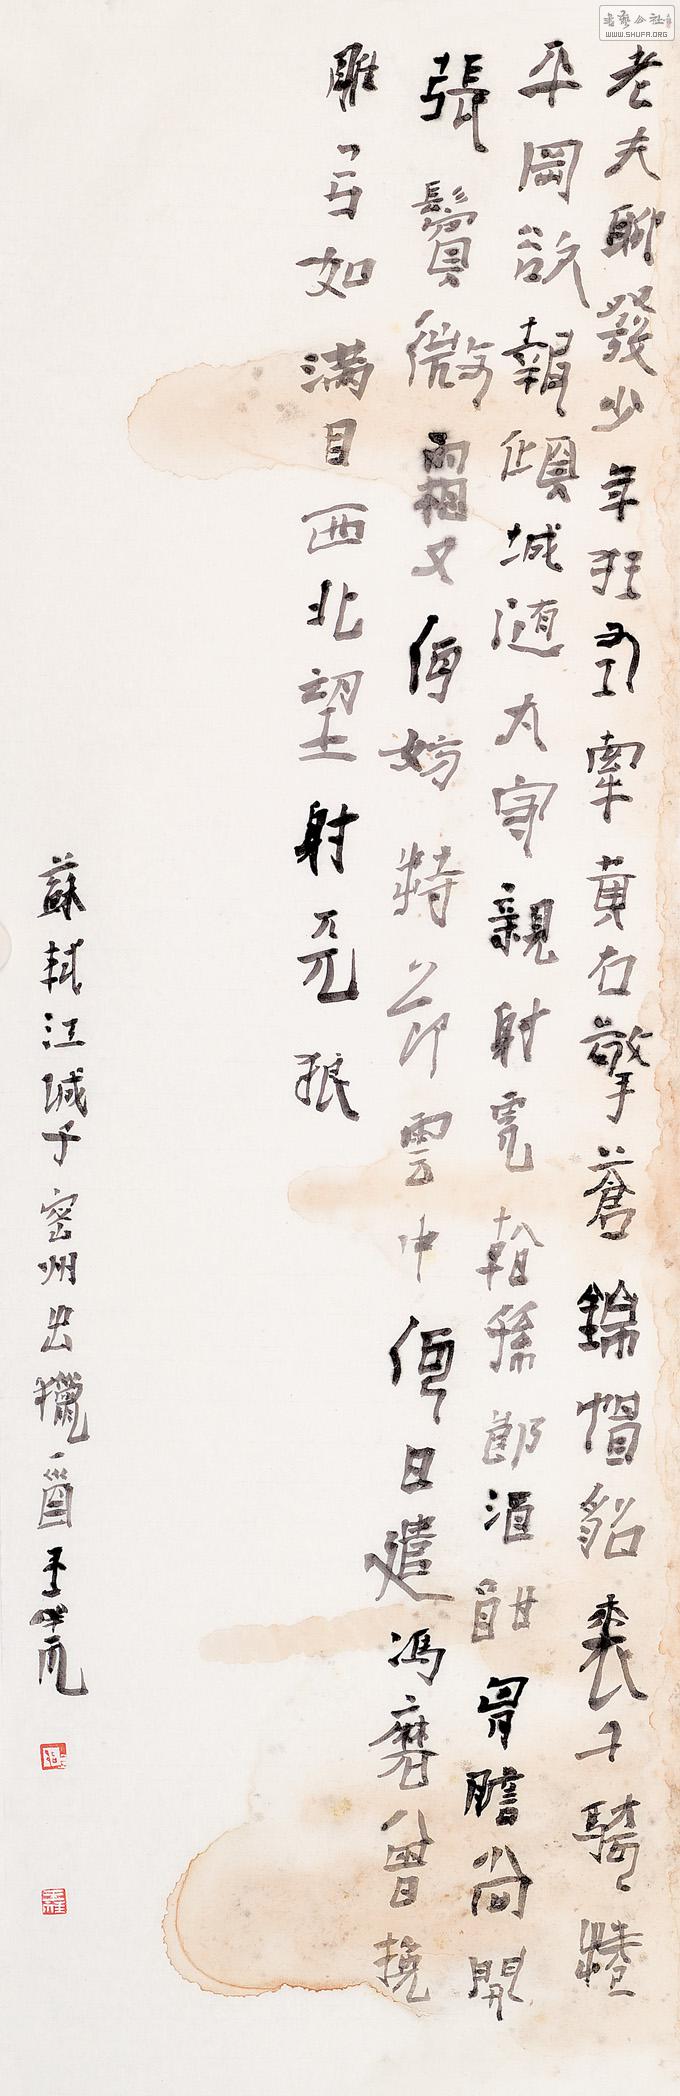 老夫聊發少年狂左牽黃右擎蒼錦帽貂裘千騎捲
平岡欲報傾城隨太守親射虎看孫郎酒酣胷膽尚開
張鬢微霜又何妨持節雲中何日遣馮唐會挽
雕弓如滿月西北望射天狼
蘇軾江城子密州出獵一首
書藝公社
WWW.SHUFA.ORG